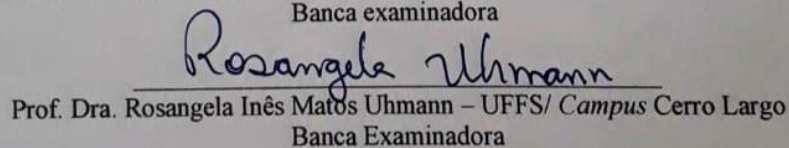 Banca examinadora
Rosangela Uhmann
Prof. Dra. Rosangela Inês Matos Uhmann – UFFS/ Campus Cerro Largo
Banca Examinadora